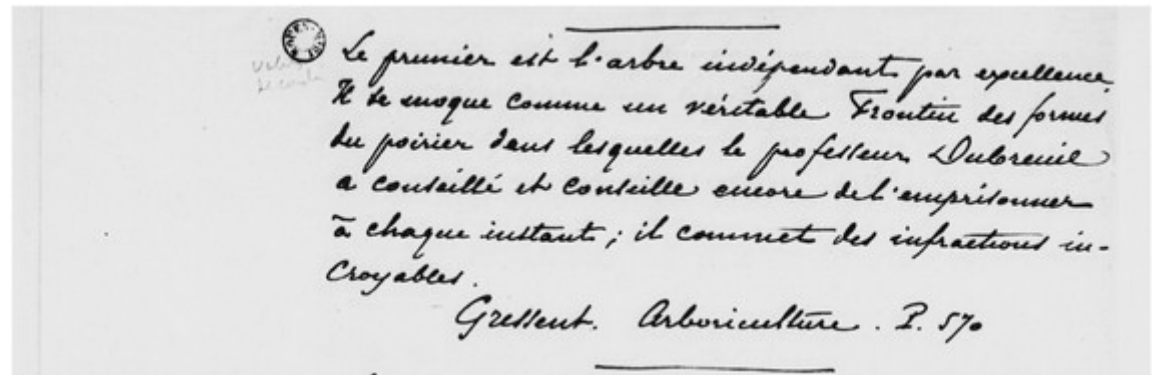 Le prunier est l'arbre indépendant par excellence
Il se moque comme un véritable Frontin des formes
du poirier dans lesquelles le professeur Dubreuil
a conseillé et conseille encore de l'emprisonner
à chaque instant ; il commet des infractions in-
croyables.
Gressent. Arboriculture. P. 570